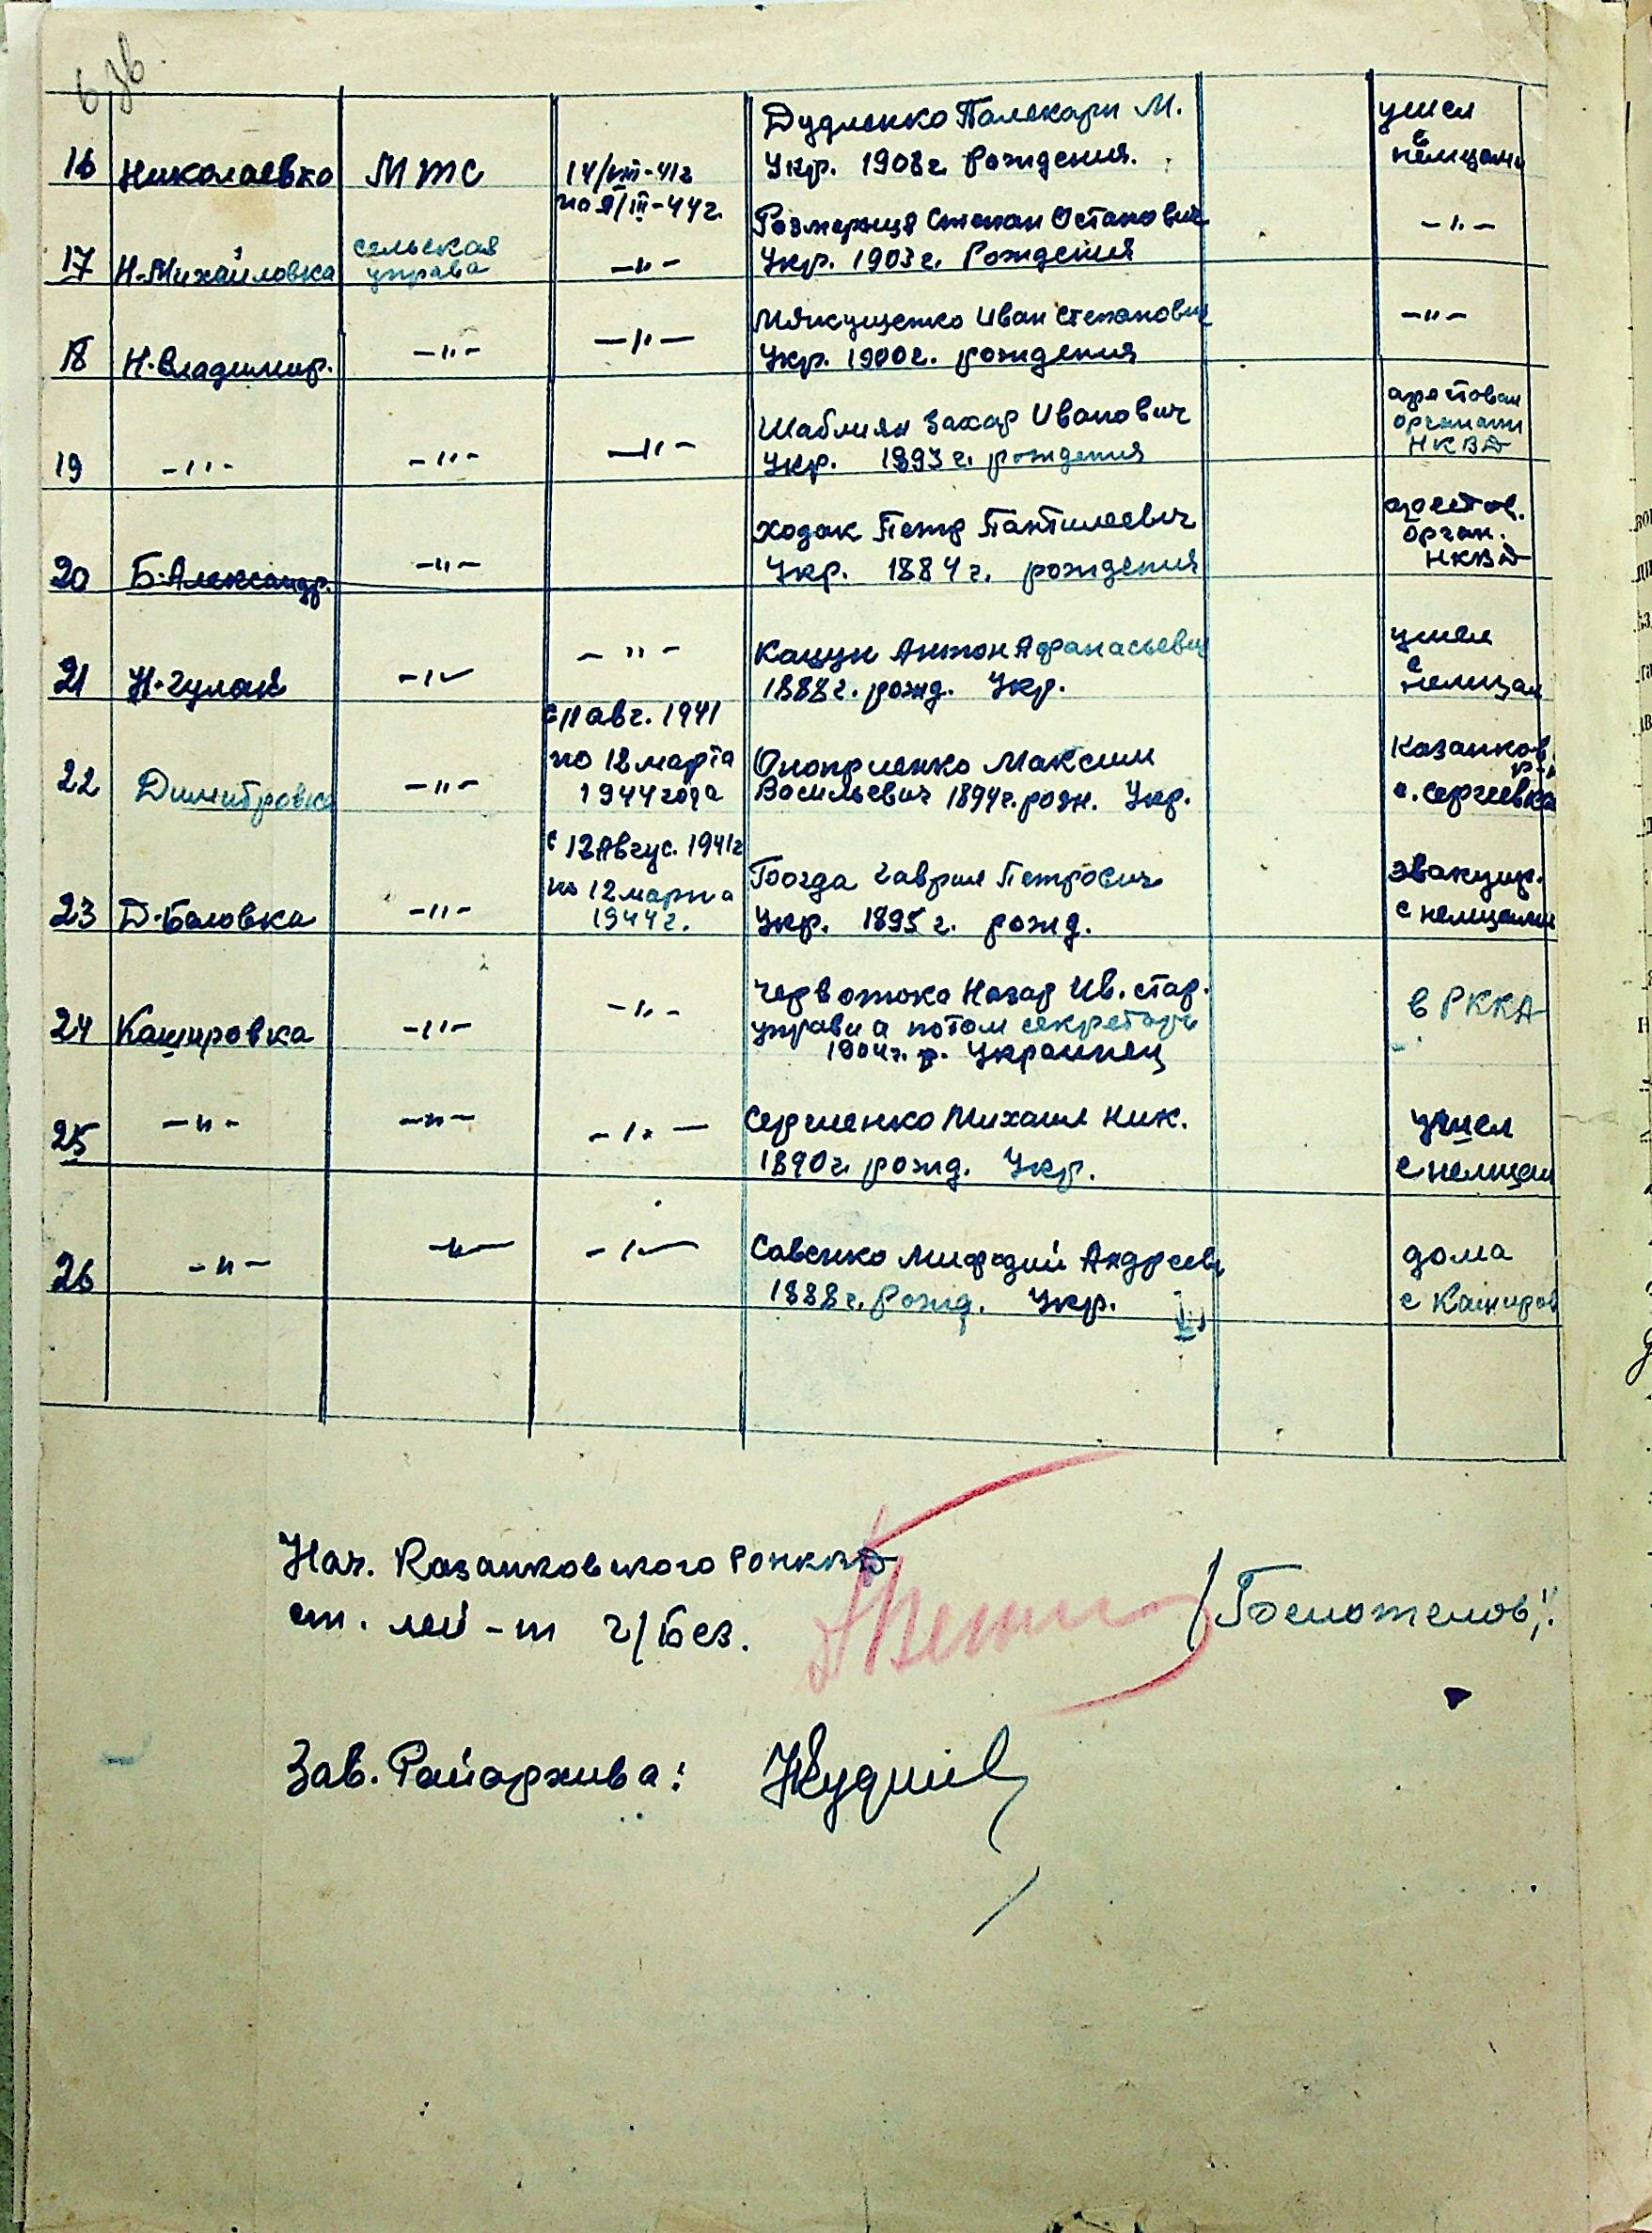 16 Николаевка МТС 14/VIII-41г по 9/III-44г. Дудленко Палекарп М. Укр. 1908г. рождения. ушел с немцами
17 Н-Михайловка сельская управа -"- Розмерица Степан Остапович Укр. 1903г. рождения -"-
18 Н-Владимир. -"- -"- Мякущенко Иван Степанович Укр. 1900г. рождения -"-
19 -"- -"- -"- Шаблиян Захар Иванович Укр. 1893г. рождения арестован органами НКВД
20 Б-Александр. -"- Ходак Петр Пантилеевич Укр. 1884г. рождения арестов. орган. НКВД
21 -"- -"- Кацун Антон Афанасьевич 1888г. рожд. Укр. ушел с немцам
22 Димитровка -"- с 11 авг. 1941 по 12 марта 1944 года Оноприенко Максим Васильевич 1894г. рожд. Укр. Казанков. р-н с. Сергеевка
23 -"- с 12 Авгус. 1941г по 12 марта 1944г. Гаврил Петрович Укр. 1895г. рожд. эвакуир. с немцами
24 Кашировка -"- -"- Червотока Назар Ив. стар. управи а потом секретарь 1904г. р. Украинец в РККА
25 -"- -"- -"- Сергиенко Михаил Ник. 1890г. рожд. Укр. ушел с немцам
26 -"- -"- -"- Савенко Мифодий Андреев 1888г. рожд. Укр. дома с Каширов
Нач. Казанковского РОНКВД
ст. лей-т г/Без.
Зав. Райархива: